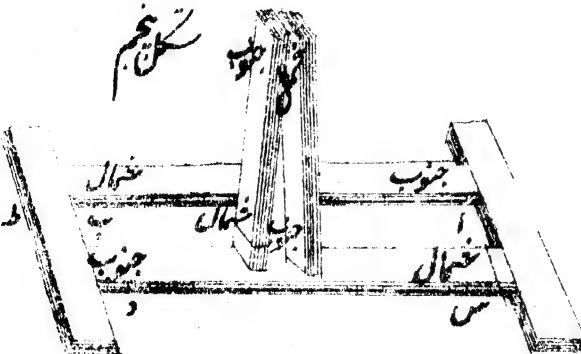 شکل پنجم
جنوب شمال
شمال جنوب
شمال جنوب
جنوب شمال
ا
د
س